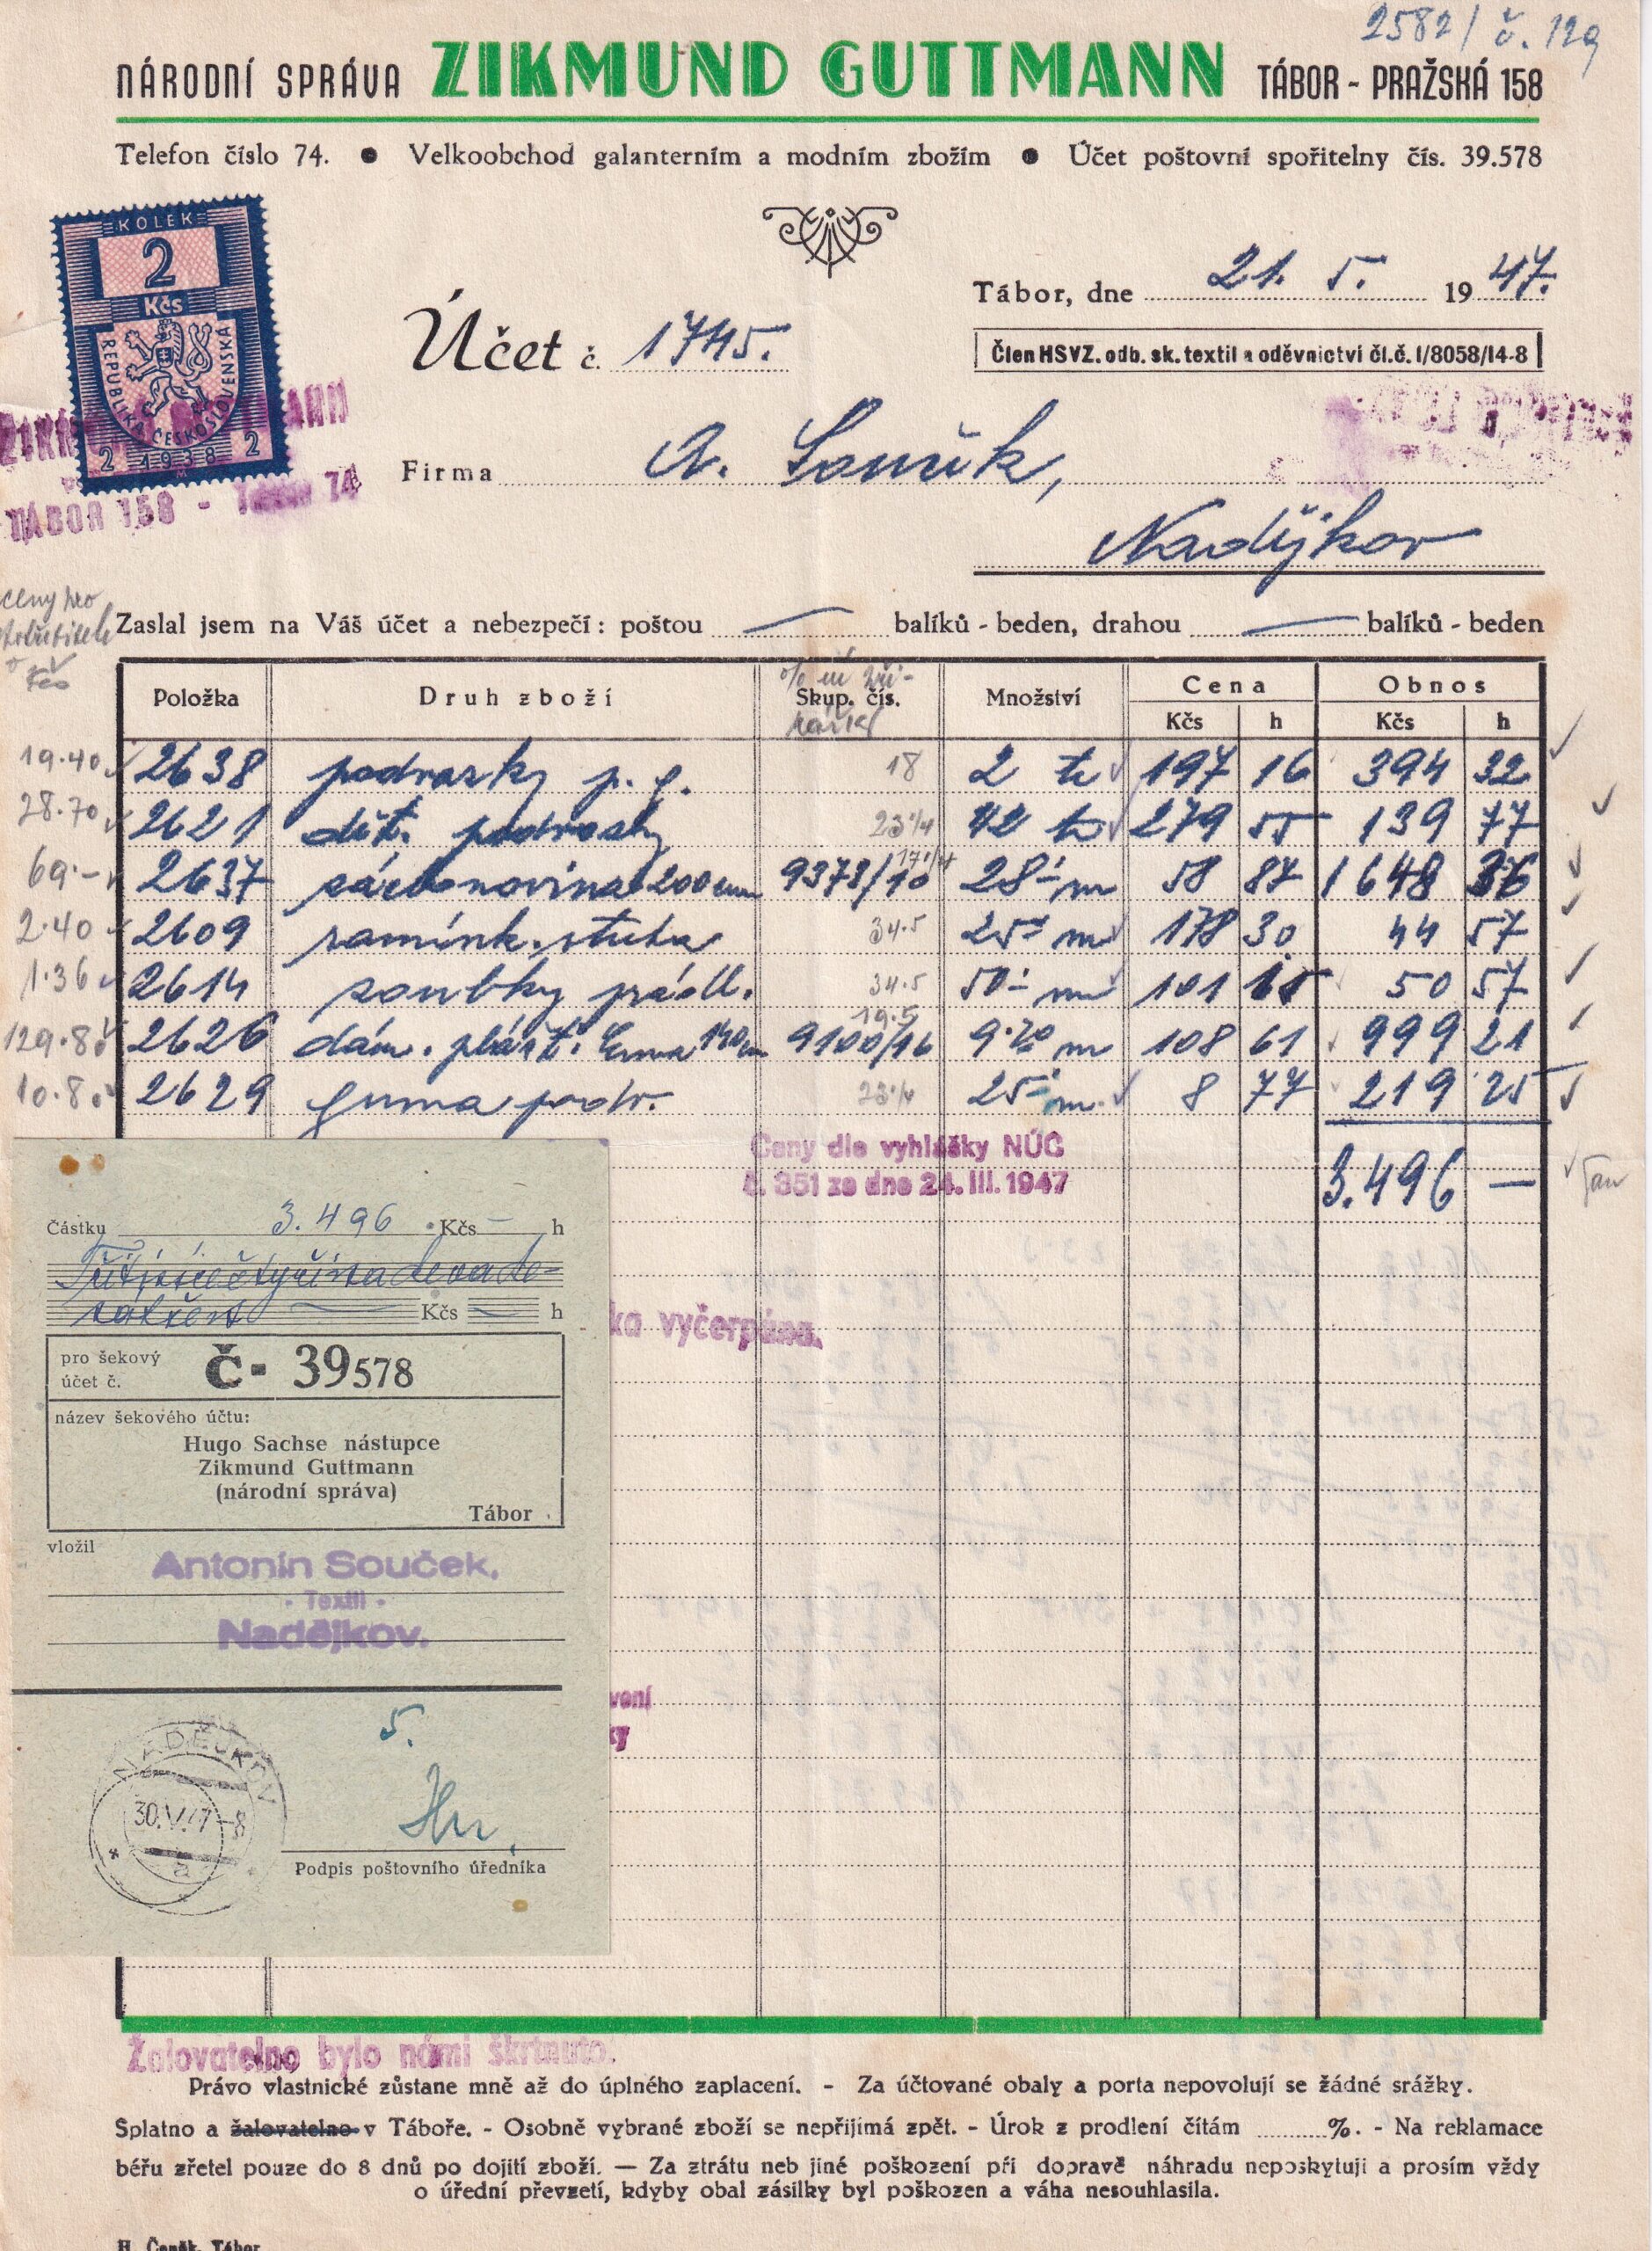 2582 / č. 129
NÁRODNÍ SPRÁVA ZIKMUND GUTTMANN TÁBOR - PRAŽSKÁ 158
Telefon číslo 74. ● Velkoobchod galanterním a modním zbožím ● Účet poštovní spořitelny čís. 39.578
KOLEK
2
Kčs
REPUBLIKA ČESKOSLOVENSKÁ
2 1938 2
TÁBOR 158 - 74
Tábor, dne 21. 5. 1947.
Účet č. 1745.
Člen HSVZ. odb. sk. textil a oděvnictví čl. č. 1/8058/14-8
Firma A. Souček,
Nadějkov
ceny pro
Kčs
Zaslal jsem na Váš účet a nebezpečí: poštou — balíků - beden, drahou — balíků - beden
Položka Druh zboží Skup. čís. Množství Cena Obnos
Kčs h Kčs h
19.40 2638 podvazky p. g. 18 2 tc 197 16 394 32
28.70 2621 dět. podvazky 23¼ 279 55 139 77
69.- 2637 200 cm 9373/10 28.- m 58 87 1648 36
2.40 2609 ramínk. stuha 34.5 25.- m 178 30 44 57
1.36 2614 zoubky prádl. 34.5 50.- m 101 15 50 57
19.5
129.80 2626 dám. plášť. 140 9100/16 9.20 m 108 61 999 21
10.80 2629 guma podv. 23¼ 25.- m 8 77 219 25
Ceny dle vyhlášky NÚC
č. 351 ze dne 24. III. 1947
3.496 —
Částku 3.496 Kčs — h
Třitisícečtyřistadevade-
sátšest — Kčs — h
ka vyčerpána.
pro šekový
účet č. Č- 39578
název šekového účtu:
Hugo Sachse nástupce
Zikmund Guttmann
(národní správa)
Tábor
vložil
Antonín Souček,
- Textil -
Nadějkov.
vení
ky
5.
NADĚJKOV
30.V.47-8
a
Podpis poštovního úředníka
Žalovatelno bylo námi škrtnuto.
Právo vlastnické zůstane mně až do úplného zaplacení. - Za účtované obaly a porta nepovolují se žádné srážky.
Splatno a žalovatelno v Táboře. - Osobně vybrané zboží se nepřijímá zpět. - Úrok z prodlení čítám ........%. - Na reklamace
béřu zřetel pouze do 8 dnů po dojití zboží. — Za ztrátu neb jiné poškození při dopravě náhradu neposkytuji a prosím vždy
o úřední převzetí, kdyby obal zásilky byl poškozen a váha nesouhlasila.
H. Čeněk, Tábor